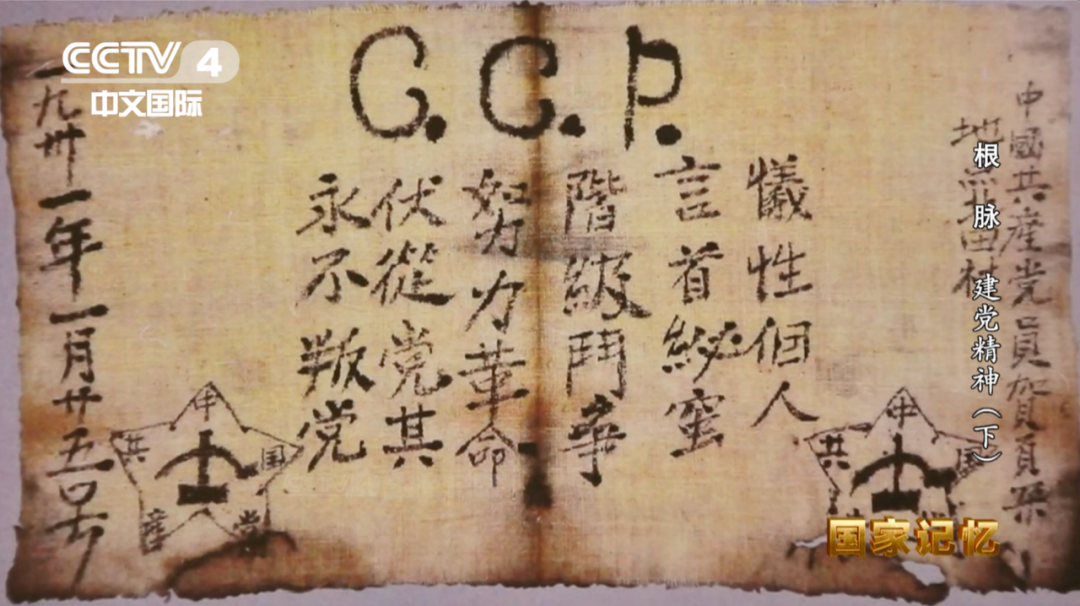 CCTV 4
中文国际
C.C.P.
中國共產党員
地
田村
儀性個人
言首秘蜜
階級鬥爭
努力革命
伏從党其
永不叛党
一九卅一年一月廿五号
中国共產党
中国共
根脉 建党精神（下）
国家记忆